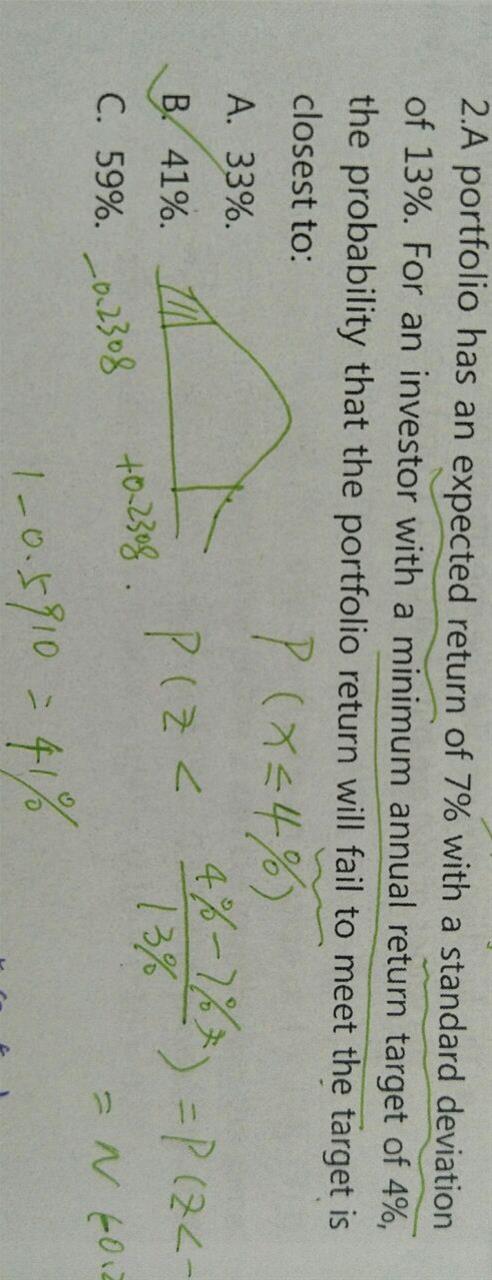 2.A portfolio has an expected return of 7% with a standard deviation
of 13%. For an investor with a minimum annual return target of 4%,
the probability that the portfolio return will fail to meet the target is
closest to:
A. 33%.
B. 41%.
C. 59%.
P(x≤4%)
P(Z < (4%-7%)/13%) = P(Z<-
= N(-0.2
-0.2308
+0.2308
1-0.5910 = 41%